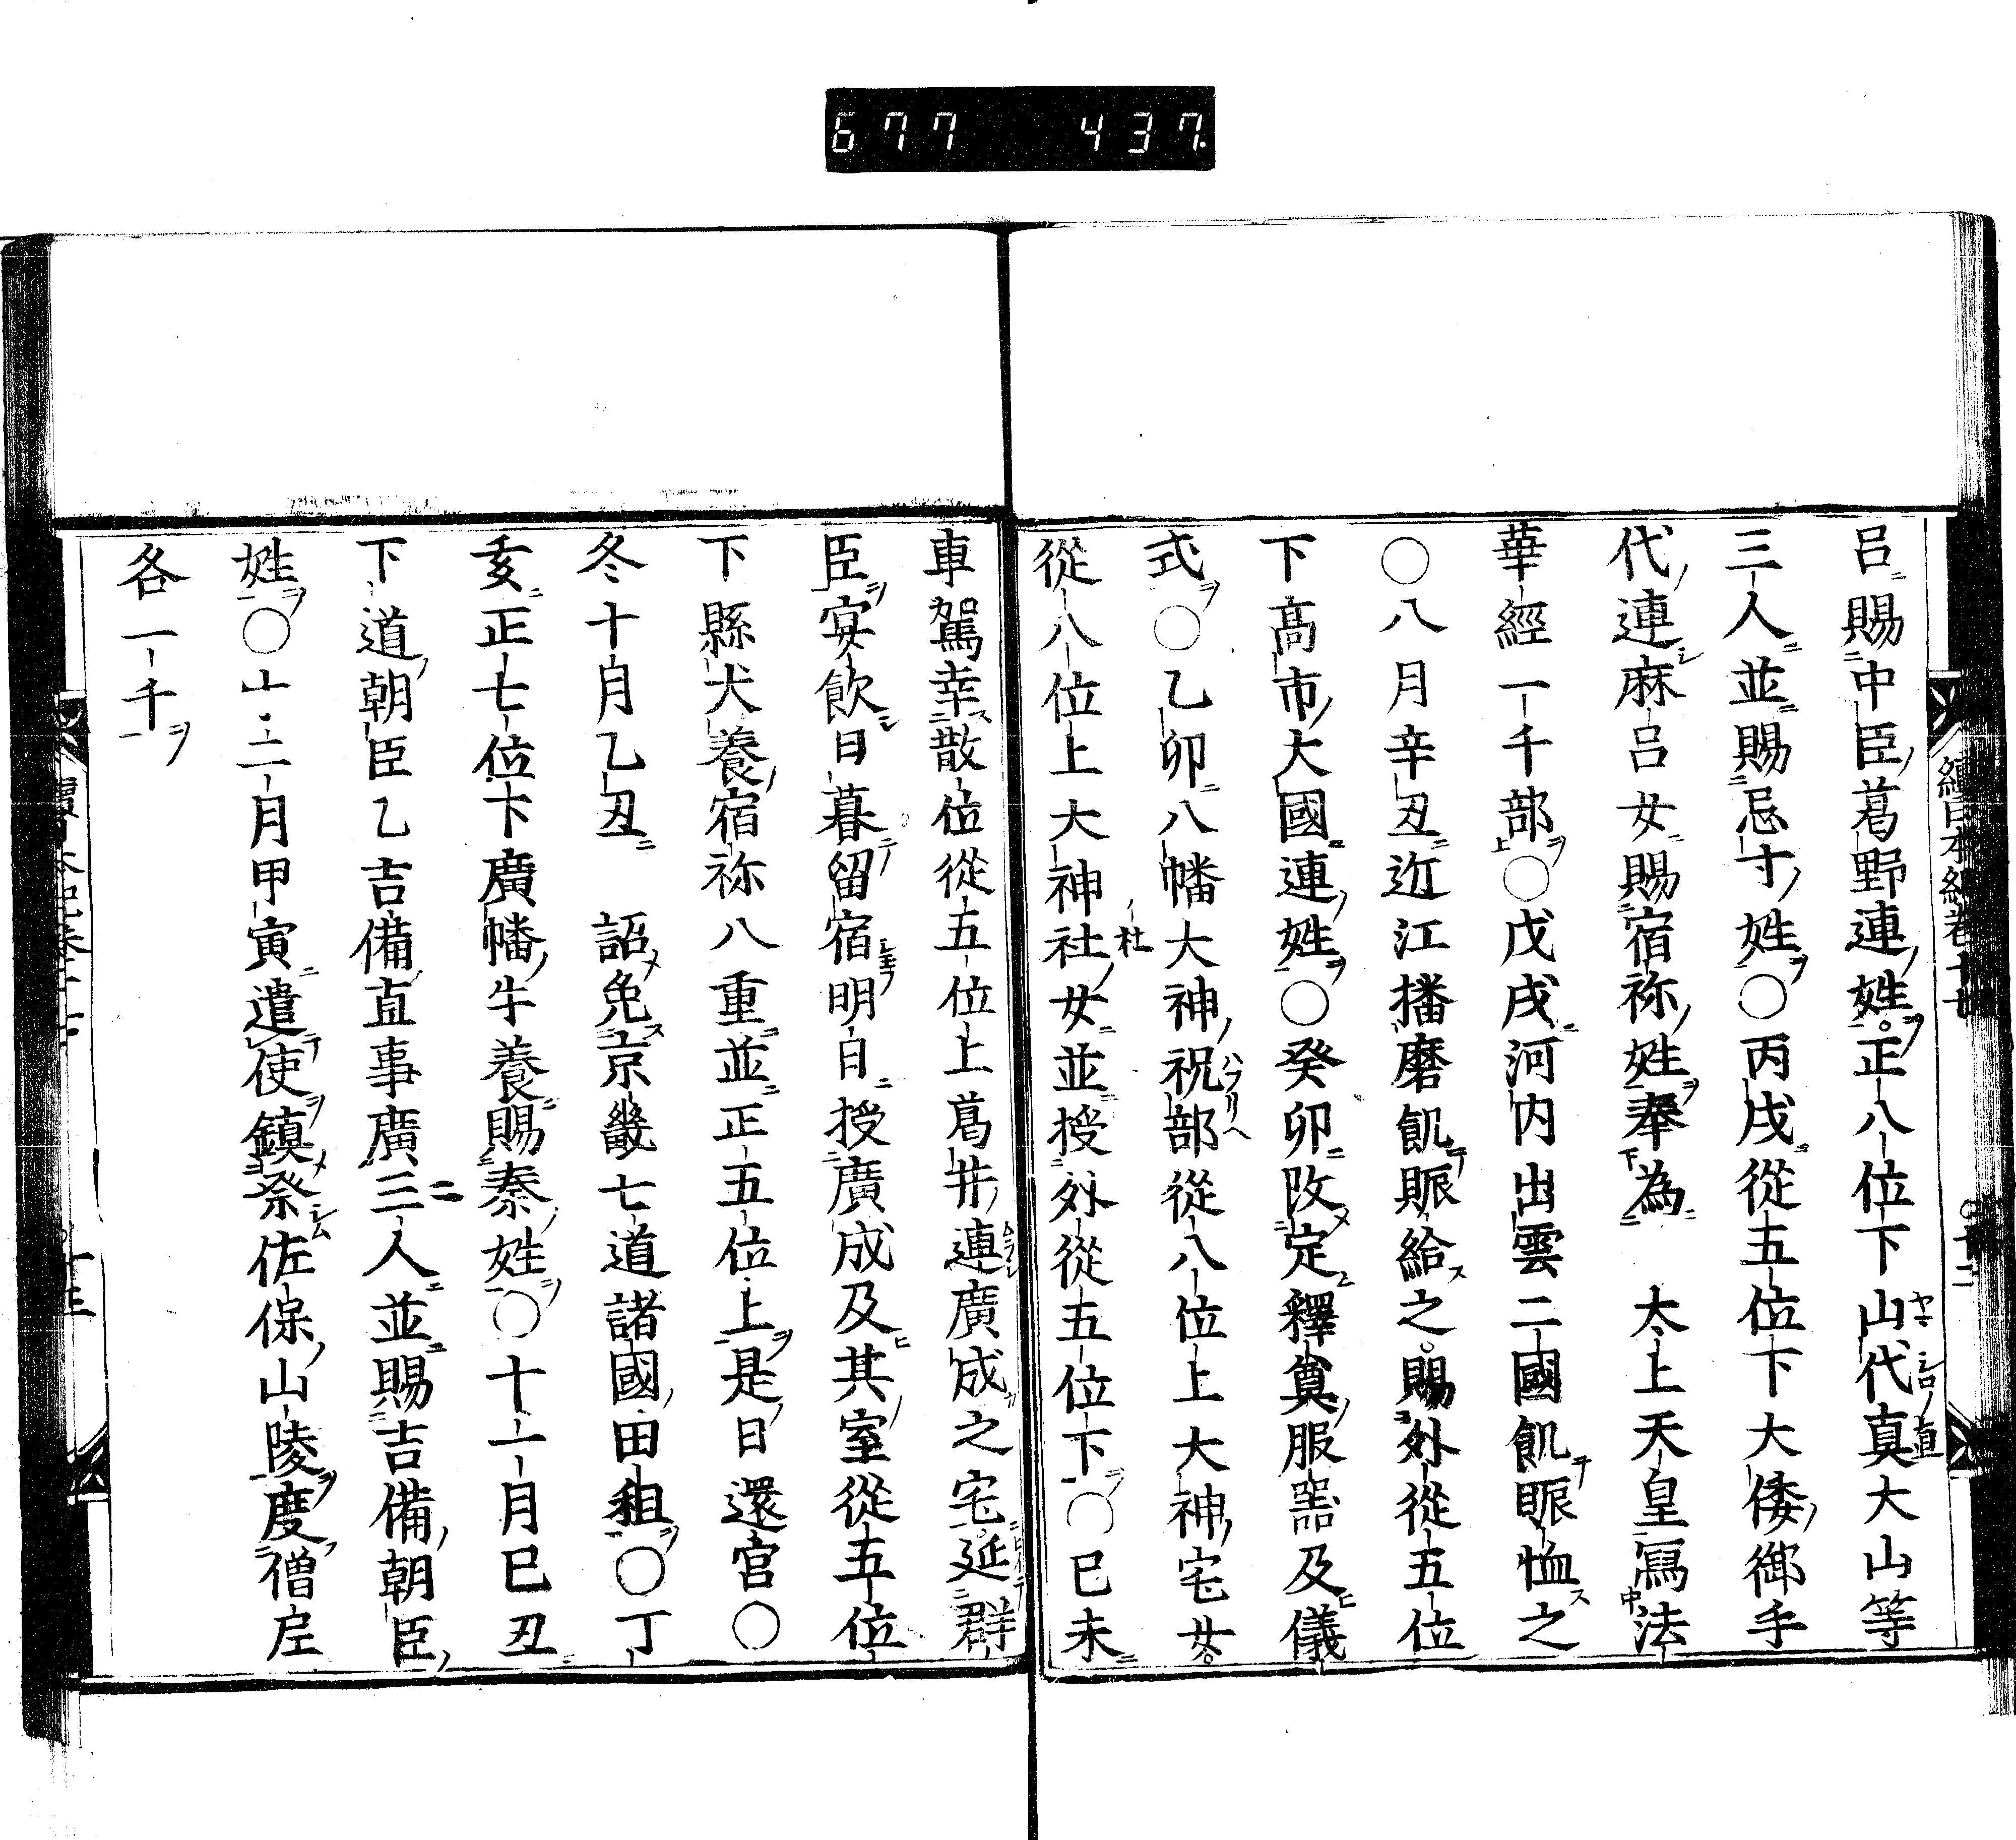 677 437
續日本紀卷十七
十二
呂賜中臣葛野連姓正八位下山代真大山等
三人並賜忌寸姓○丙戌從五位下大倭御手
代連麻呂女賜宿祢姓奉為 太上天皇寫法
華經一千部○戊戌河内出雲二國飢賑恤之
○八月辛丑近江播磨飢賑給之賜外從五位
下高市大國連姓○癸卯改定釋奠服器及儀
式○乙卯八幡大神祝部從八位上大神宅女
從八位上大神社女並授外從五位下○巳未
車駕幸散位從五位上葛井連廣成之宅延群
臣宴飲日暮留宿明日授廣成及其室從五位
下縣犬養宿祢八重並正五位上是日還宮○
冬十月乙丑 詔免京畿七道諸國田租○丁
亥正七位下廣幡牛養賜秦姓○十一月巳丑
下道朝臣乙吉備直事廣三人並賜吉備朝臣
姓○十二月甲寅遣使鎮祭佐保山陵度僧尼
各一千
十三